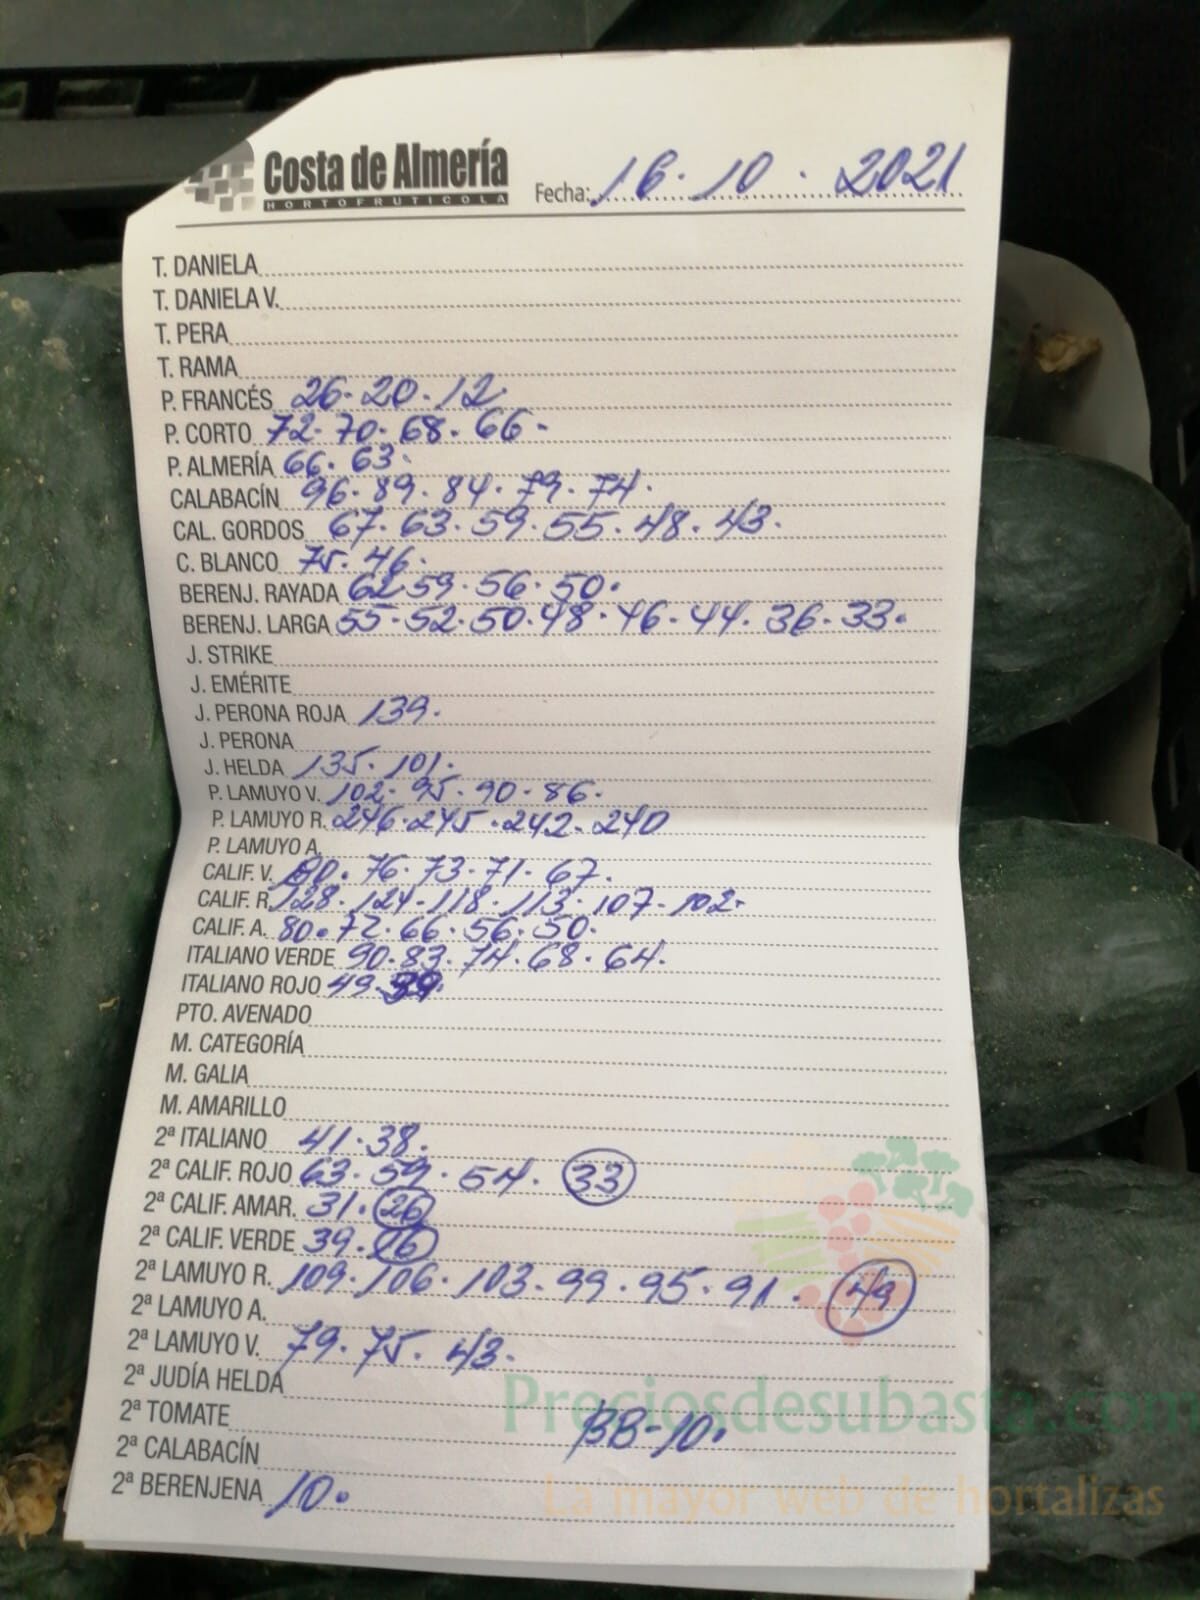 Costa de Almería
HORTOFRUTICOLA
Fecha: 16·10·2021
T. DANIELA
T. DANIELA V.
T. PERA
T. RAMA
P. FRANCÉS 26·20·12·
P. CORTO 72·70·68·66·
P. ALMERÍA 66·63·
CALABACÍN 96·89·84·79·74·
CAL. GORDOS 67·63·59·55·48·43·
C. BLANCO 75·46·
BERENJ. RAYADA 62 59·56·50·
BERENJ. LARGA 55·52·50·48·46·44·36·33·
J. STRIKE
J. EMÉRITE
J. PERONA ROJA 139·
J. PERONA
J. HELDA 135·101·
P. LAMUYO V. 102·95·90·86·
P. LAMUYO R. 246·245·242·240
P. LAMUYO A.
CALIF. V. 80·76·73·71·67·
CALIF. R. 128·124·118·113·107·102·
CALIF. A. 80·72·66·56·50·
ITALIANO VERDE 90·83·74·68·64·
ITALIANO ROJO 49·39·
PTO. AVENADO
M. CATEGORÍA
M. GALIA
M. AMARILLO
2ª ITALIANO 41·38·
2ª CALIF. ROJO 63·59·54·33
2ª CALIF. AMAR. 31·26
2ª CALIF. VERDE 39·16
2ª LAMUYO R. 109·106·103·99·95·91·49
2ª LAMUYO A.
2ª LAMUYO V. 79·75·43·
2ª JUDÍA HELDA
Preciosdesubasta.com
2ª TOMATE BB-10·
2ª CALABACÍN
2ª BERENJENA 10·
La mayor web de hortalizas